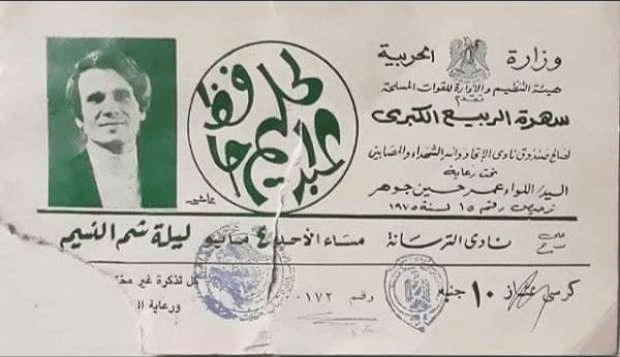 وزارة الحربية
هيئة التنظيم والإدارة للقوات المسلحة
تقدم
سهرة الربيع الكبرى
لصالح صندوق نادى الإتحاد وأسر الشهداء والمصابين
تحت رعاية
السيد/ اللواء عمر حسين جوهر
ترخيص رقم ١٥ لسنة ١٩٧٥
عبد الحليم حافظ
على مسرح نادى الترسانة مساء الأحد ٤ مايو ليلة شم النسيم
كرسى ممتاز ١٠ جنيه رقم ٠٠١٧٢
كل تذكرة غير
ورعاية